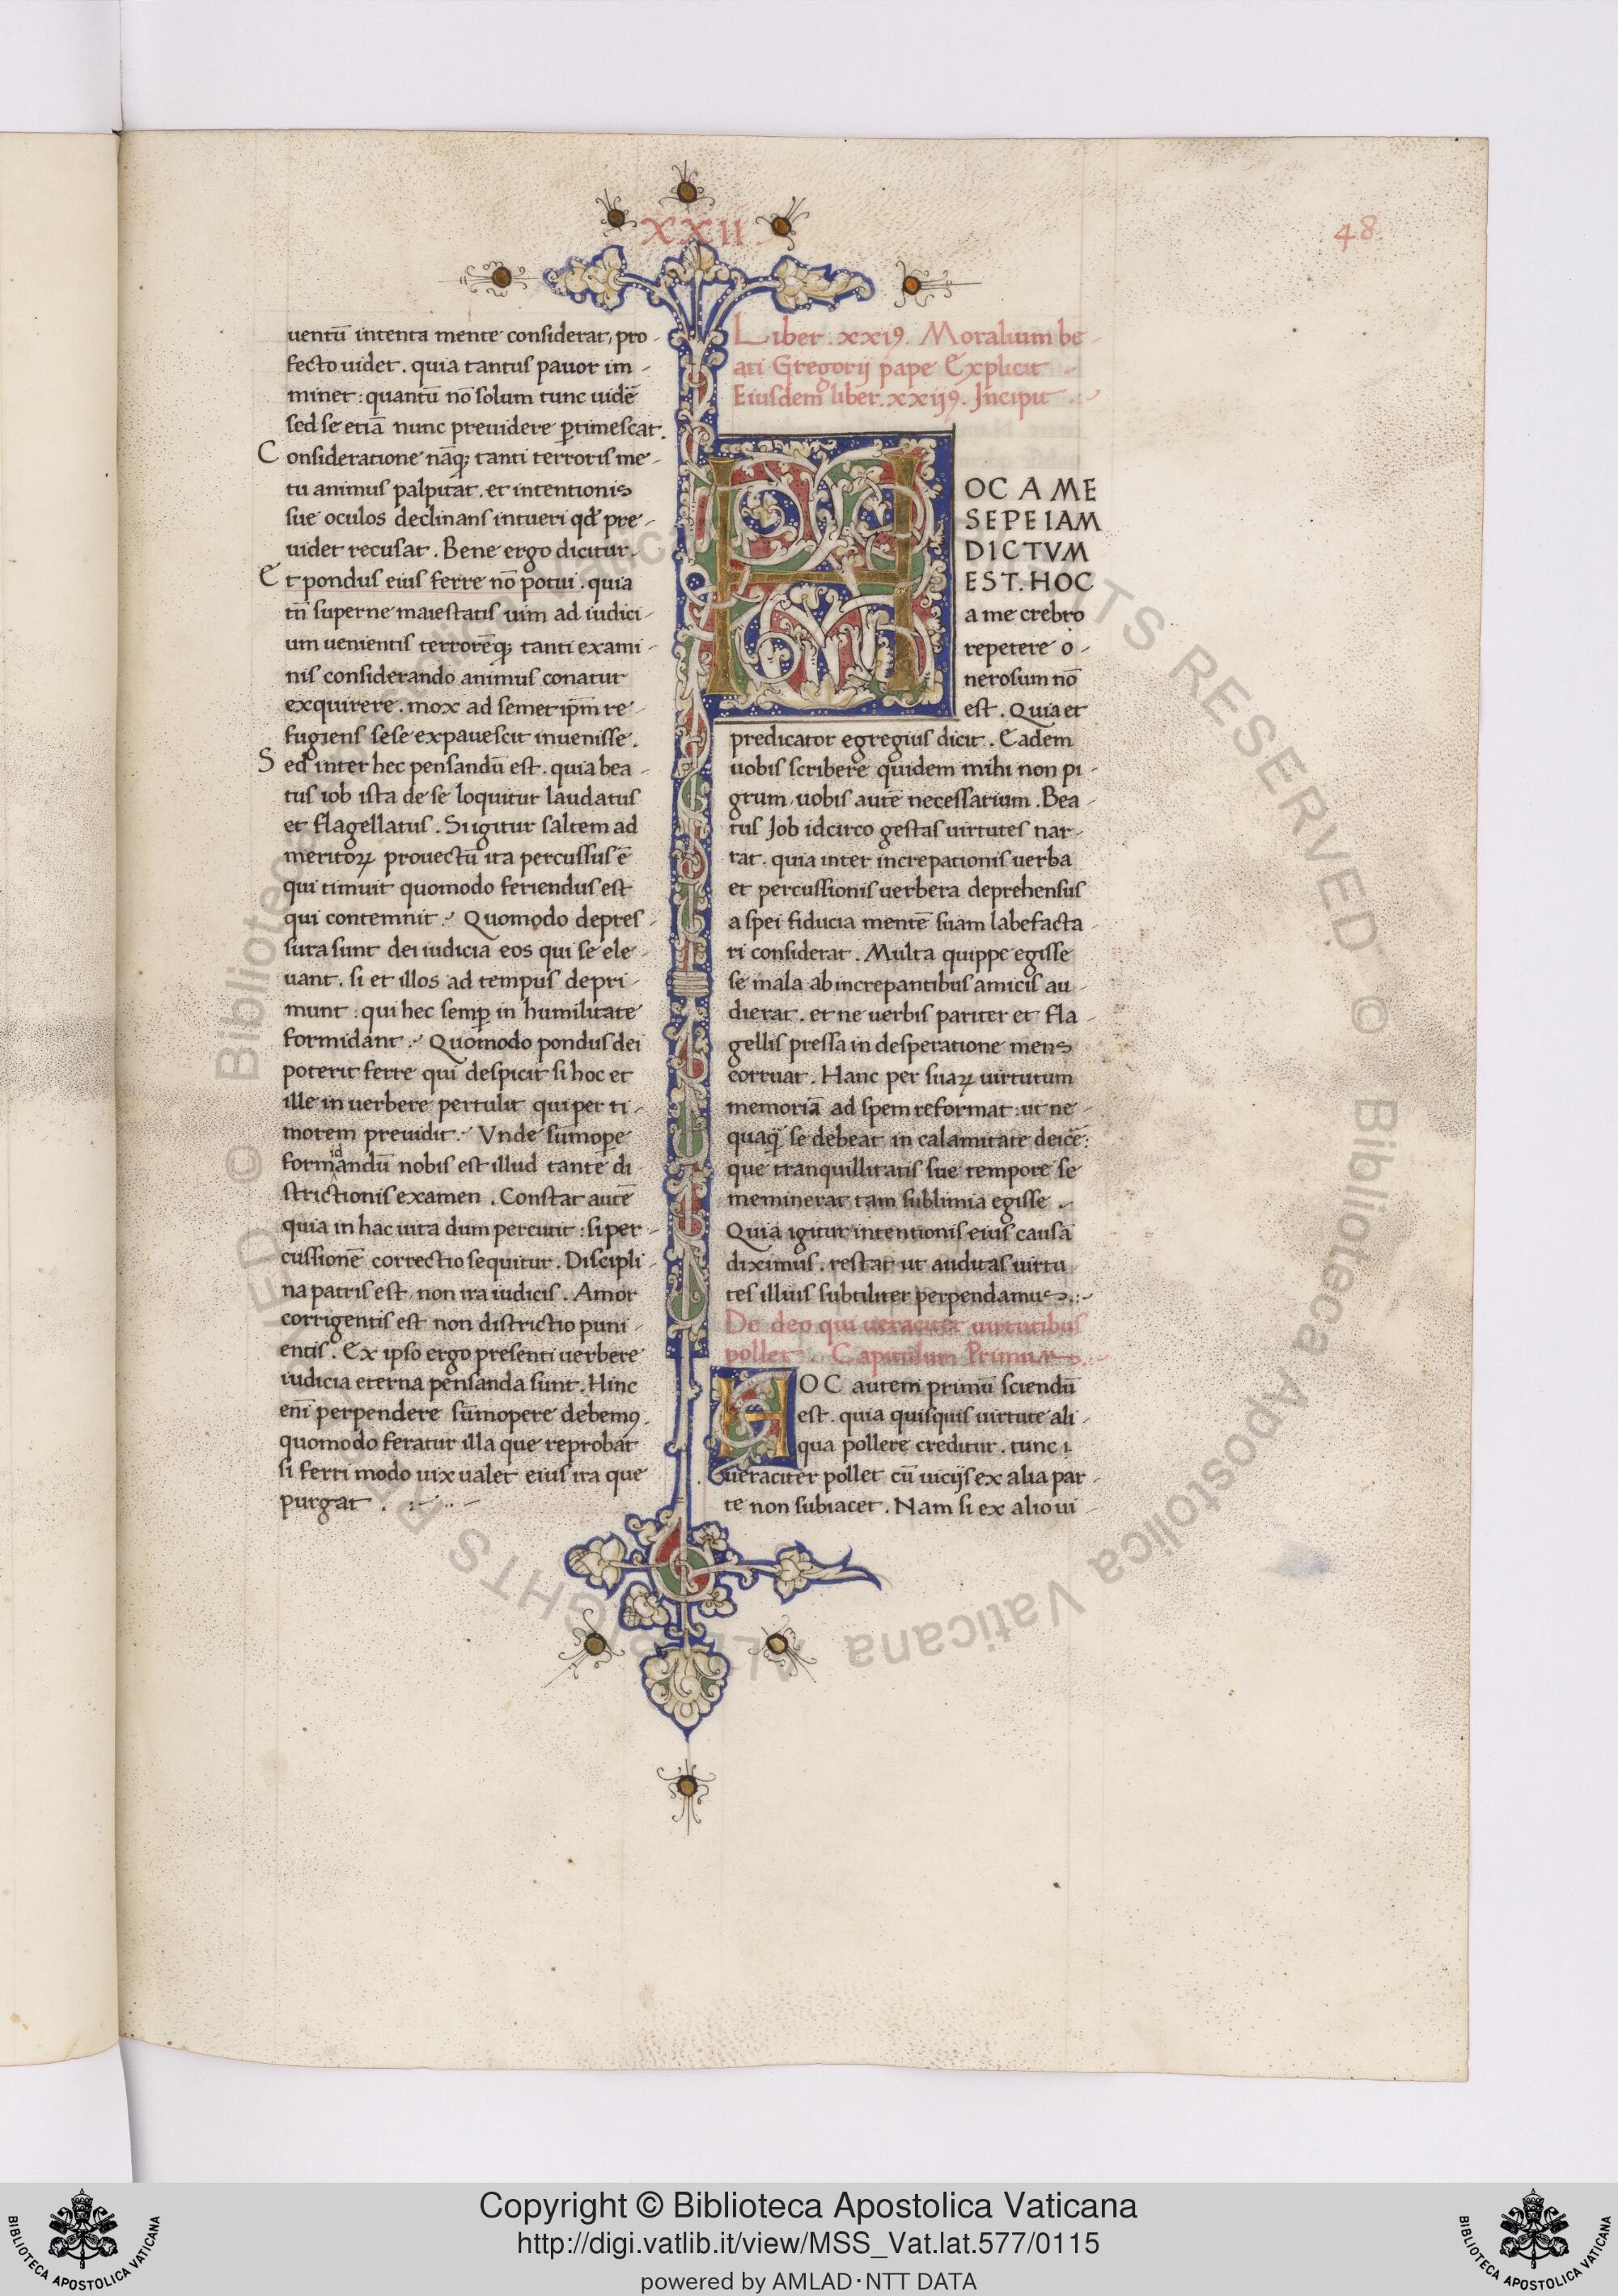 XXII
48
uentū intenta mente considerat, pro-
fecto uidet. quia tantus pauor im-
minet: quantū nō solum tunc uidē
sed se etiā nunc preuidere ꝑtimescat.
Consideratione nāq; tanti terroris me-
tu animus palpitat. et intentionis
sue oculos declinans intueri qđ pre-
uidet recusat. Bene ergo dicitur.
Et pondus eius ferre nō potui. quia
tn̄ superne maiestatis uim ad iudici-
um uenientis terrorēq; tanti exami-
nis considerando animus conatur
exquirere. mox ad semet ip̄m re-
fugiens sese expauescit inuenisse.
Sed inter hec pensandū est. quia bea-
tus iob ista de se loquitur laudatus
et flagellatus. Si igitur saltem ad
meritoꝝ prouectū ita percussus ē
qui timuit quomodo feriendus est
qui contemnit. Quomodo depres-
sura sunt dei iudicia eos qui se ele-
uant. si et illos ad tempus depri-
munt: qui hec semꝑ in humilitate
formidant. Quomodo pondus dei
poterit ferre qui despicit si hoc et
ille in uerbere pertulit qui per ti-
morem preuidit. Vnde sūmope
formidandū nobis est illud tante di-
strictionis examen. Constat autē
quia in hac uita dum percutit: si per-
cussionē correctio sequitur. Discipli-
na patris est non ira iudicis. Amor
corrigentis est non districtio puni-
entis. Ex ipso ergo presenti uerbere
iudicia eterna pensanda sunt. Hinc
enī perpendere sūmopere debemꝰ.
quomodo feratur illa que reprobat
si ferri modo uix ualet eius ira que
purgat.
Liber. xxi9. Moralium be-
ati Gregorij pape Explicit
Eiusdem liber. xxij9. Incipit
HOC A ME
SEPE IAM
DICTVM
EST. HOC
a me crebro
repetere o-
nerosum nō
est. Quia et
predicator egregius dicit. Eadem
uobis scribere quidem mihi non pi-
grum uobis autē necessarium. Bea-
tus Job idcirco gestas uirtutes nar-
rat. quia inter increpationis uerba
et percussionis uerbera deprehensus
a spei fiducia mentē suam labefacta-
ri considerat. Multa quippe egisse
se mala ab increpantibus amicis au-
dierat. et ne uerbis pariter et fla-
gellis pressa in desperatione mens
corruat. Hanc per suaꝝ uirtutum
memoriā ad spem reformat: ut ne-
quaq̄ se debeat in calamitate deicē:
que tranquillitatis sue tempore se
meminerat tam sublimia egisse.
Quia igitur intentionis eius causā
diximus. restat ut auditas uirtu
tes illius subtiliter perpendamus.
De deo qui ueraciter uirtutibus
pollet. Capitulum Primum.
HOC autem primū sciendū
est. quia quisquis uirtute ali-
qua pollere creditur. tunc
ueraciter pollet cū uicijs ex alia par-
te non subiacet. Nam si ex alio ui-
© Biblioteca Apostolica Vaticana ALL RIGHTS RESERVED
Copyright © Biblioteca Apostolica Vaticana
http://digi.vatlib.it/view/MSS_Vat.lat.577/0115
powered by AMLAD·NTT DATA
BIBLIOTECA APOSTOLICA VATICANA
BIBLIOTECA APOSTOLICA VATICANA